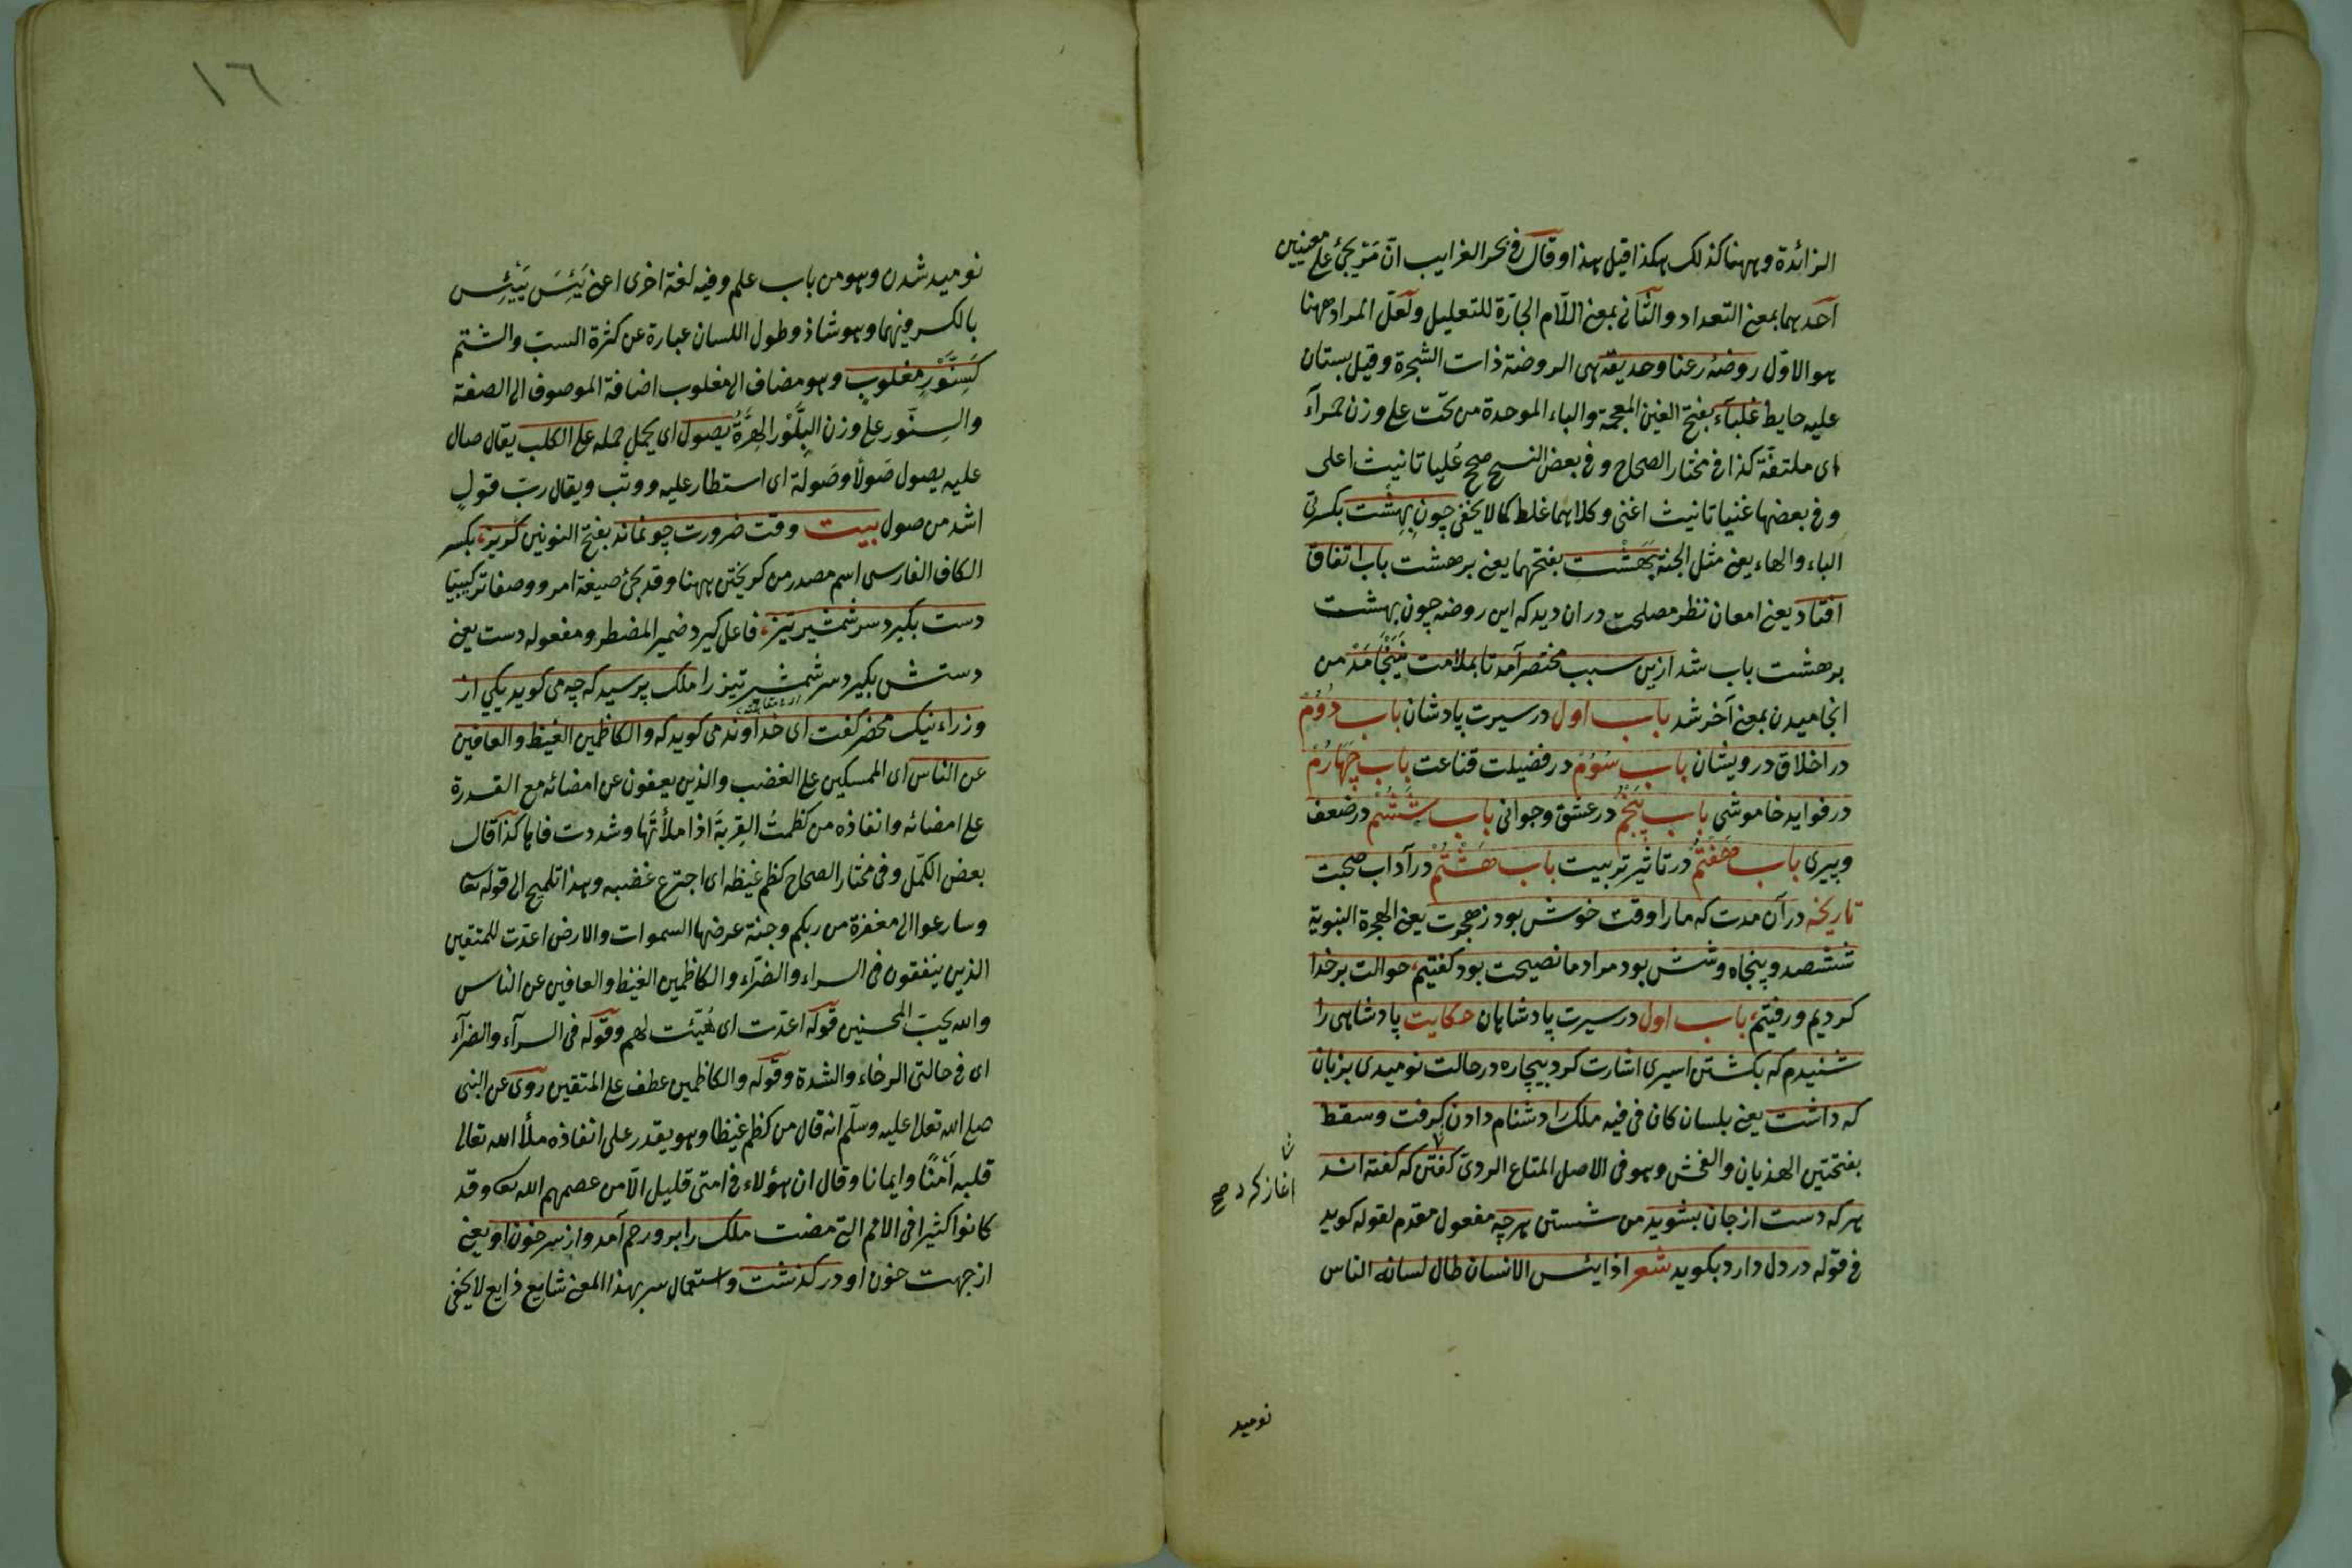 الزائدة وههنا كذلك هكذا قيل هذا وقال فى بحر الغرايب انّ مَرْ يجئ على معنيين
احدهما بمعنى التعداد والثانى بمعنى اللّام الجارّة للتعليل ولعلّ المراد ههنا
هو الاوّل روضۀ رعنا وحديقۀ هى الروضة ذات الشجرة وقيل بستان
عليه حايط غلبآء بفتح الغين المعجمة والباء الموحدة من تحت على وزن حمرآء
اى ملتفّة كذا فى مختار الصحاح وفى بعض النسخ صح عُليا تانيث اعلى
وفى بعضها غنيا تانيث اغنى وكلاهما غلط كما لا يخفى چون بِهِشت بكسرتى
الباء والهاء يعنى مثل الجنة بَهَشت بفتحهما يعنى بر هشت باب اتفاق
افتاد يعنى امعان نظر مصلحت دران ديد كه اين روضه چون بهشت
بر هشت باب شد ازين سبب مختصر آمد تا بملامت نَيَنْجَامَدْ من
انجاميدن بمعنى آخر شد باب اول در سيرت پادشان باب دوُمْ
در اخلاق درويشان باب سُوُمْ در فضيلت قناعت باب چهارُمْ
در فوايد خاموشى باب پَنْجُمْ در عشق وجوانى باب شَشُمْ در ضعف
وپيرى باب هَفْتُمْ در تاثير تربيت باب هَشْتُمْ در آداب صحبت
تاريخه در آن مدت كه ما را وقت خوش بود ز هجرت يعنى الهجرة النبوية
ششصد وپنجاه وشش بود مراد ما نصيحت بود كفتيم، حوالت بر خدا
كرديم ورفتيم، باب اول در سيرت پادشاهان حكايت پادشاهى را
شنيدم كه بكشتن اسيرى اشارت كرد بيچاره در حالت نوميدى بزبان
كه داشت يعنى بلسان كان فى فيه ملك را دشنام دادن كرفت وسقط
بفتحتين الهذيان والفحش وهو فى الاصل المتاع الردىّ كفتن كه كفته اند
اغاز كرد صح
هر كه دست از جان بشويد من شستن هر چه مفعول مقدم لقوله كويد
فى قوله در دل دارد بكويد شعر اذا يئس الانسان طال لسانه الناس
نوميد
١٦
نوميد شدن وهو من باب علم وفيه لغة اخرى اعنى يَئِسَ يَيْئِس
بالكسر فيهما وهو شاذ وطول اللسان عبارة عن كثرة السبّ والشتم
كَسِنَّوْرِ مغلوب وهو مضاف الى مغلوب اضافة الموصوف الى الصفة
والسِنّور على وزن البِلَّوْر الهِرَّةُ يصول اى يحمل حمله على الكلب يقال صال
عليه يصول صَولًا وصَولة اى استطار عليه ووثب ويقال ربّ قولٍ
اشد من صول بيت وقت ضرورت چو نماند بفتح النونين كريز، بكسر
الكاف الفارسى اسم مصدر من كريختن ههنا وقد يجئ صيغة امر ووصفا تركيبيّا
دست بكيرد سر شمشير تيز، فاعل كيرد ضمير المضطر ومفعوله دست يعنى
دستش بكيرد سر شمشير تيز را ملك پرسيد كه چه مى كويد يكى از
وزراء نيك محضر كفت اى خداوند مى كويد كه والكاظمين الغيظ والعافين
عن الناس اى الممسكين على الغضب والذين يعفون عن امضائه مع القدرة
على امضائه وانفاذه من كظمتُ القِربةَ اذا ملأتَها وشددت فاها كذا قال
بعض الكمّل وفى مختار الصحاح كظم غيظه اى اجترع غضبه وهذا تلميح الى قوله تعا
وسارعوا الى مغفرة من ربكم وجنة عرضها السموات والارض اعدّت للمتقين
الذين ينفقون فى السراء والضرّاء والكاظمين الغيظ والعافين عن الناس
والله يحبّ المحسنين قوله اعدّت اى هُيِّئت لهم وقوله فى السرآء والضرآء
اى فى حالتى الرخاء والشدة وقوله والكاظمين عطف على المتقين روى عن النبى
صلى الله تعالى عليه وسلّم انه قال من كظم غيظا وهو يقدر على انفاذه ملأ الله تعالى
قلبه اَمْنًا وايمانا وقال ان هؤلاء فى امتى قليل الّا من عصمهم الله تعا وقد
كانوا كثيرا فى الامم التى مضت ملك را برو رحم آمد واز سر خون او يعنى
از جهت خون او در كذشت واستعمال سر بهذا المعنى شايع ذايع لا يخفى